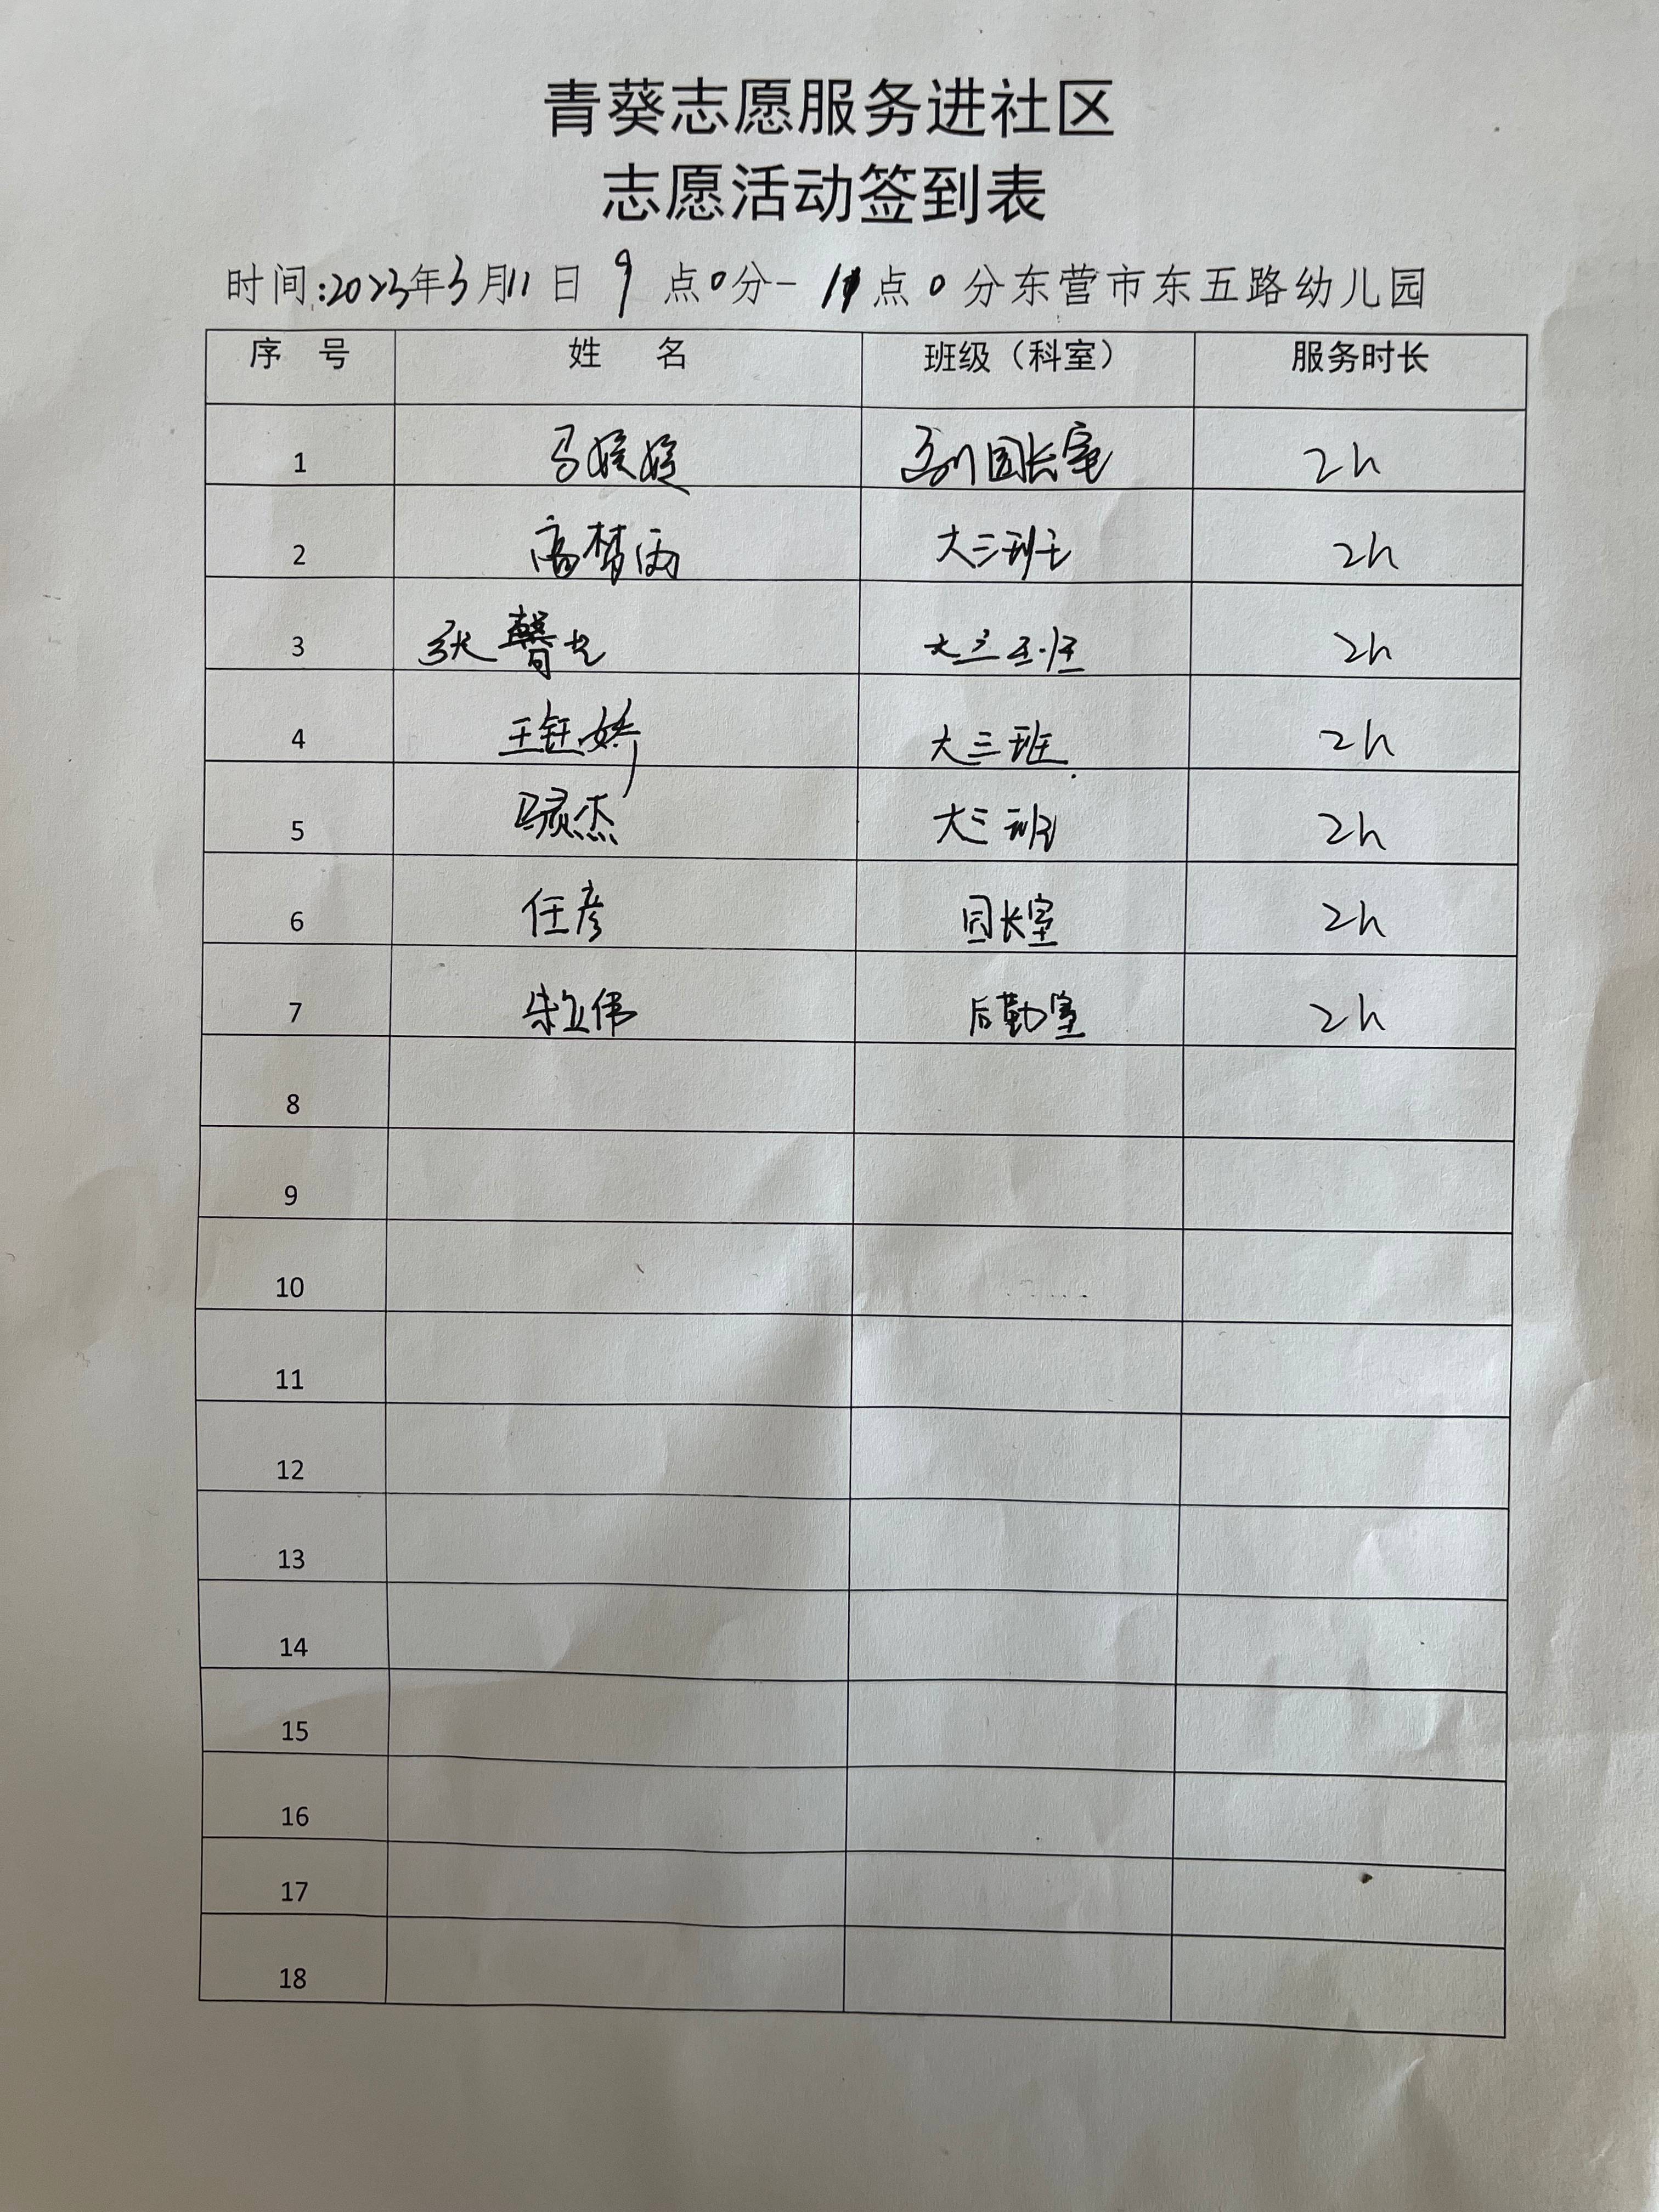 青葵志愿服务进社区
志愿活动签到表
时间:2023年3月11日 9点0分-11点0分东营市东五路幼儿园
序 号 姓 名 班级（科室） 服务时长
1 马媛媛 副园长室 2h
2 高梦雨 大三班 2h
3 张馨 2h
4 王钰娇 大三班 2h
5 大三班 2h
6 任彦 园长室 2h
7 朱立伟 后勤室 2h
8
9
10
11
12
13
14
15
16
17
18